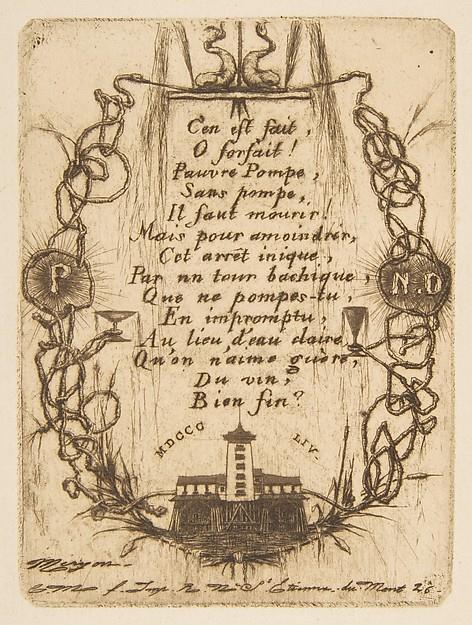 C'en est fait,
O forfait!
Pauvre Pompe,
Sans pompe,
Il faut mourir!
Mais pour amoindrir,
Cet arrêt inique,
Par un tour bachique,
Que ne pompes-tu,
En impromptu,
Au lieu d'eau claire,
Qu'on n'aime guère,
Du vin,
Bien fin?
P
N.D
MDCCC LIV-
Meryon-
f. Imp. R. N. St Etienne-du-Mont 26-